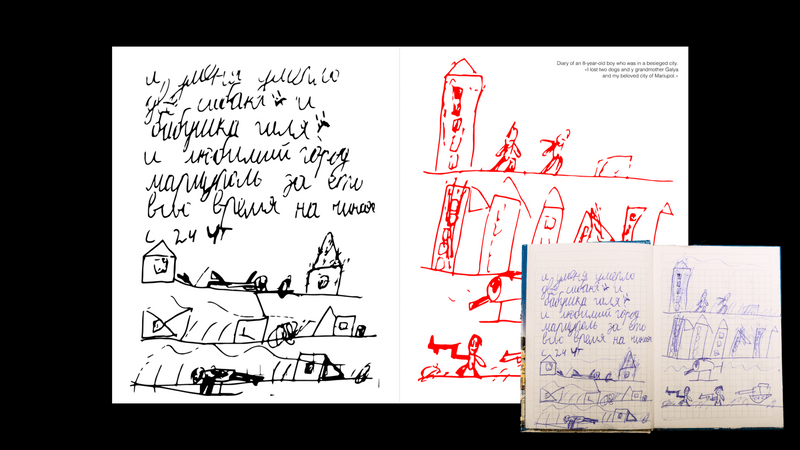 и, умена умерло
две сабаки и
бабушка галя
и любимий город
мариуполь за ето
всё время на чиная
с 24 чт
Diary of an 8-year-old boy who was in a besieged city.
«I lost two dogs and y grandmother Galya
and my beloved city of Mariupol.»
и, умена умерло
две сабаки и
бабушка галя
и любимий город
мариуполь за ето
всё время на чиная
с 24 чт